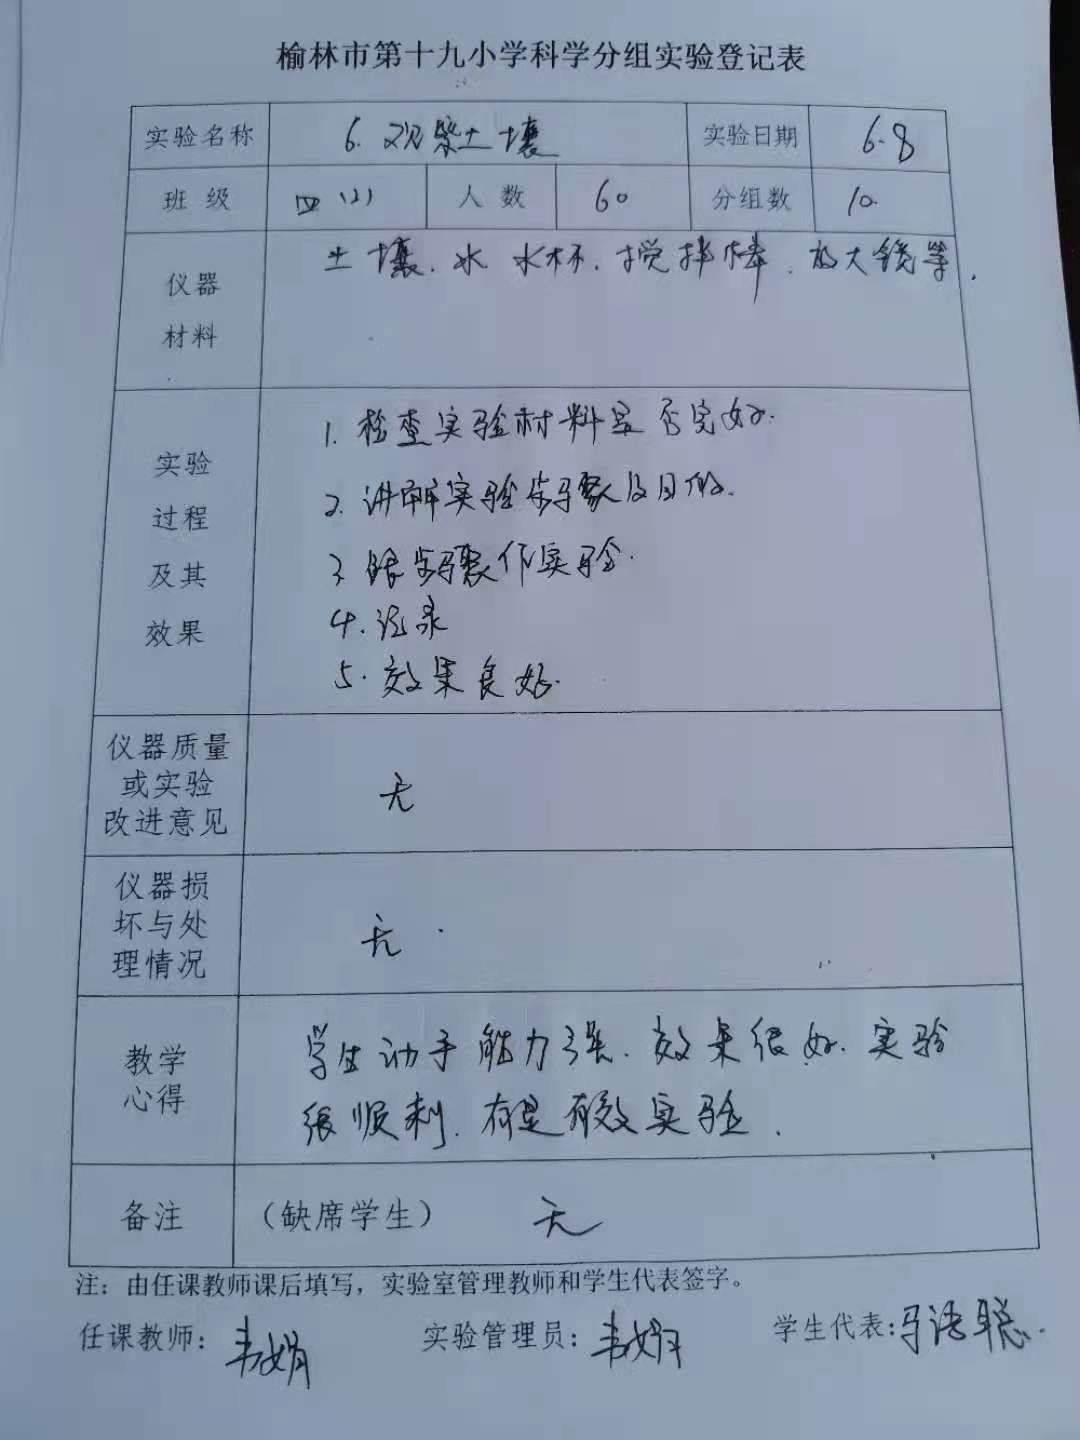 榆林市第十九小学科学分组实验登记表
实验名称 6.观察土壤 实验日期 6.8
班级 四(2) 人数 60 分组数 10
仪器材料 土壤、水 水杯、搅拌棒、放大镜等.
实验过程及其效果
1. 检查实验材料是否完好.
2. 讲解实验步骤及目的.
3. 跟步骤作实验.
4. 记录
5. 效果良好.
仪器质量或实验改进意见 无
仪器损坏与处理情况 无.
教学心得 学生动手能力强、效果很好.实验
很顺利、有是有效实验.
备注 (缺席学生) 无
注：由任课教师课后填写，实验室管理教师和学生代表签字。
任课教师：韦娟 实验管理员：韦娟 学生代表:马语聪.